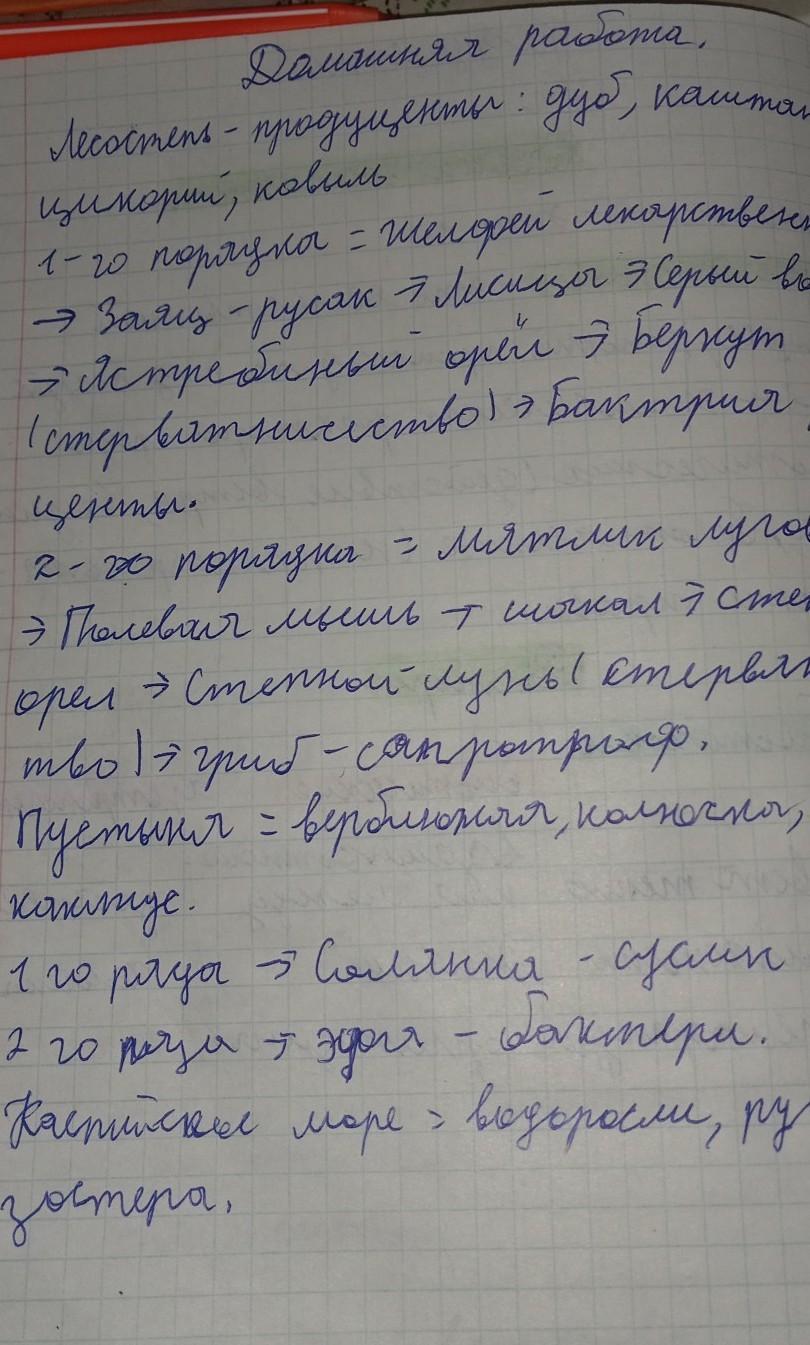 Домашняя работа.
Лесостепь - продуценты: дуб, каштан
цикорий, ковиль
1-го порядка = Шелфей лекарствен
→ Заяц - русак → Лисицы → Серый во
→ Ястребиный орёл → Беркут
(стервятничество) → Бактрия
центы.
2-го порядка = мятлик лугов
→ Полевая мышь → шакал → сте
орел → Степной-лунь (стервят
тво) → гриб - сапратроф.
Пустыня = верблюжая, колючка,
кактус.
1 го ряда → Солянка - суслик
2 го ряда → эфа - бактери.
Каспийское море = водоросли, ру
зостера.